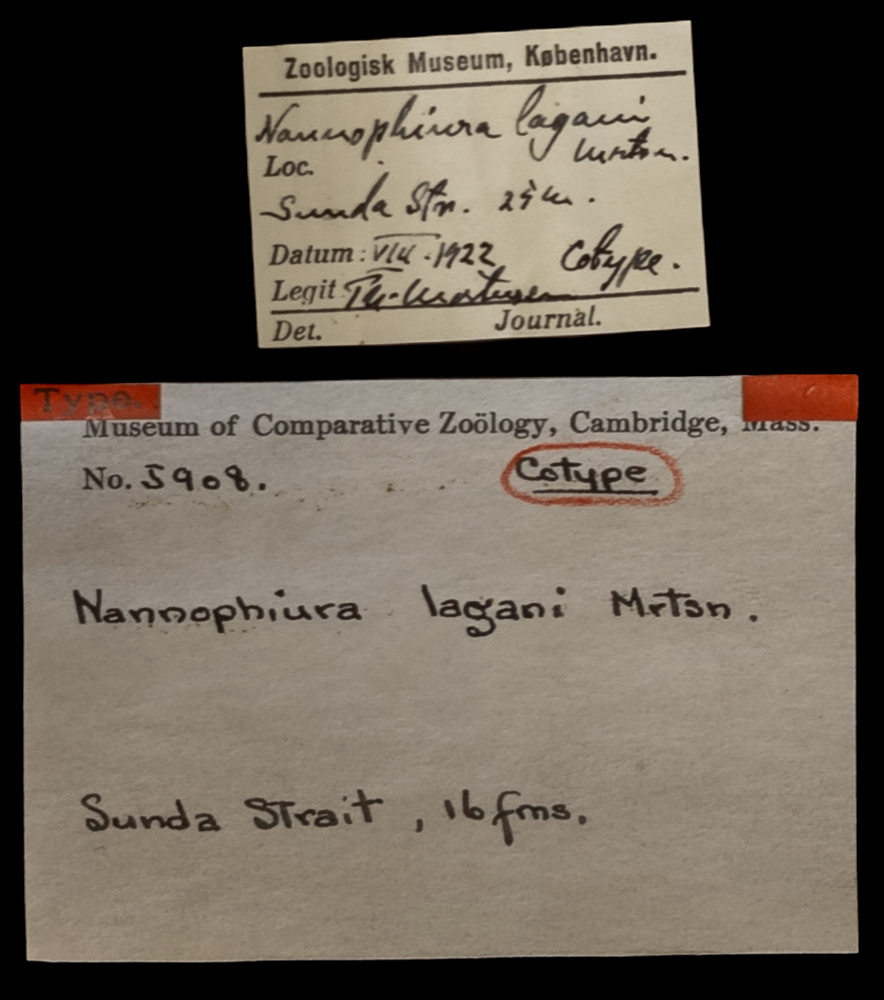 Zoologisk Museum, København.
Nannophiura lagani
Mrtsn.
Loc.
Sunda Str. 25 m.
Datum: VIII.1922 Cotype.
Legit Th. Mortensen
Det. Journal.
Type.
Museum of Comparative Zoölogy, Cambridge, Mass.
No. 5908. Cotype
Nannophiura lagani Mrtsn.
Sunda Strait, 16 fms.